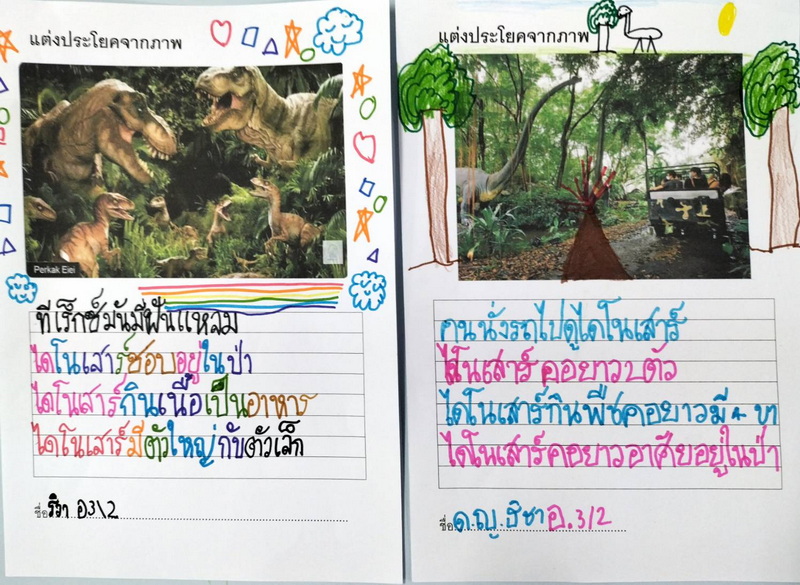 แต่งประโยคจากภาพ
Perkak Eiei
ทีเร็กซ์มันมีฟันแหลม
ไดโนเสาร์ชอบอยู่ในป่า
ไดโนเสาร์กินเนื้อเป็นอาหาร
ไดโนเสาร์มีตัวใหญ่กับตัวเล็ก
ชื่อ อ3\2
แต่งประโยคจากภาพ
คนนั่งรถไปดูไดโนเสาร์
ไดโนเสาร์คอยาว ตัว
ไดโนเสาร์กินพืชคอยาวมี 4 ขา
ไดโนเสาร์คอยาวอาศัยอยู่ในป่า
ชื่อ ด.ญ.ธิชา อ.3/2